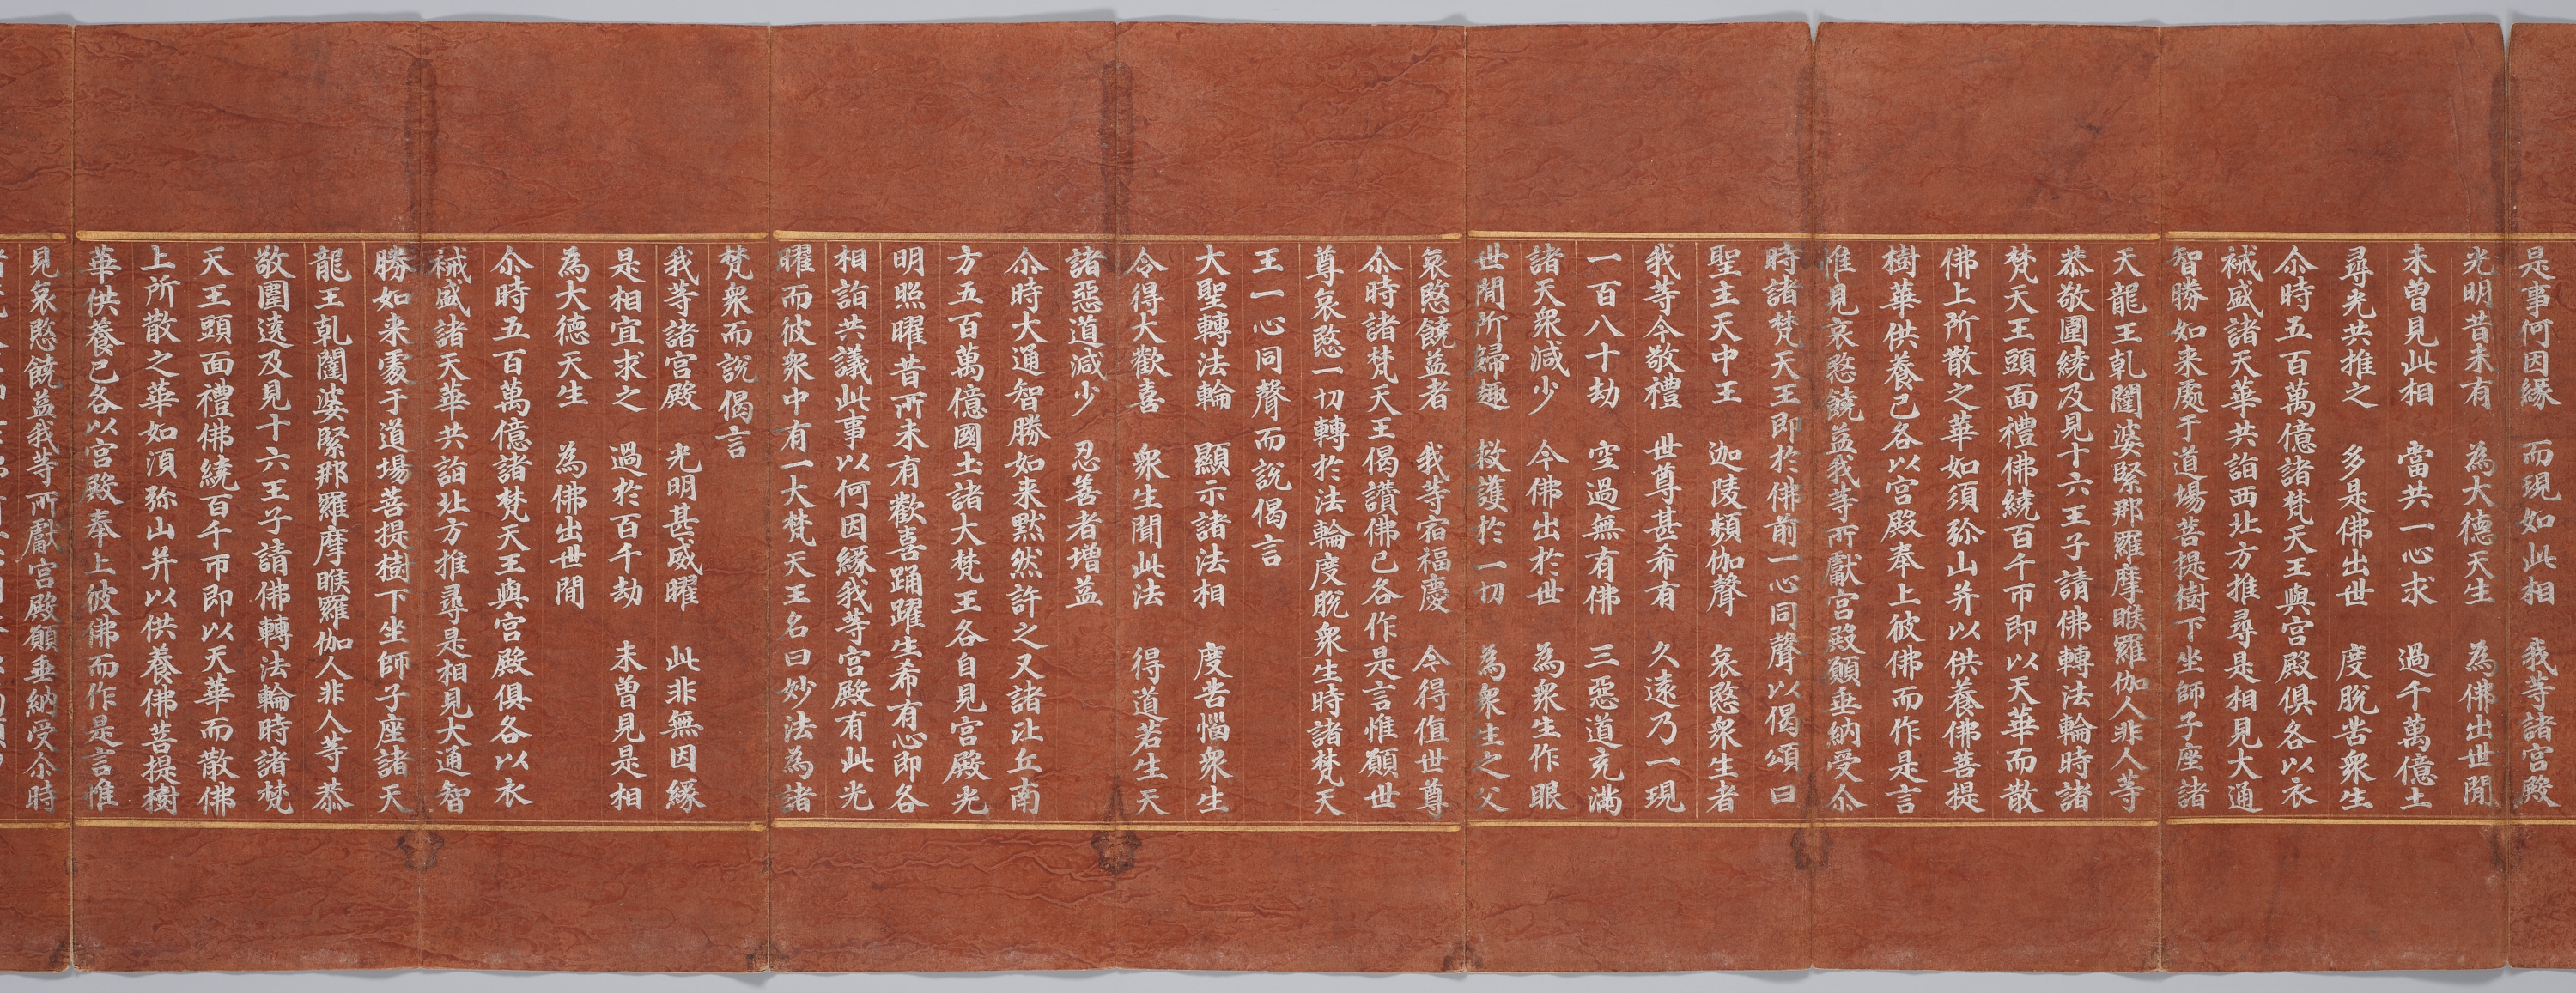 是事何因緣　而現如此相　我等諸宮殿
光明昔未有　為大德天生　為佛出世間
未曾見此相　當共一心求　過千萬億土
尋光共推之　多是佛出世　度脫苦衆生
尒時五百萬億諸梵天王與宮殿俱各以衣
裓盛諸天華共詣西北方推尋是相見大通
智勝如来處于道場菩提樹下坐師子座諸
天龍王乹闥婆緊那羅摩睺羅伽人非人等
恭敬圍繞及見十六王子請佛轉法輪時諸
梵天王頭面禮佛繞百千帀即以天華而散
佛上所散之華如須弥山并以供養佛菩提
樹華供養已各以宮殿奉上彼佛而作是言
惟見哀愍饒益我等所獻宮殿願垂納受尒
時諸梵天王即於佛前一心同聲以偈頌曰
聖主天中王　迦陵頻伽聲　哀愍衆生者
我等今敬禮　世尊甚希有　久遠乃一現
一百八十劫　空過無有佛　三惡道充滿
諸天衆減少　今佛出於世　為衆生作眼
世間所歸趣　救護於一切　為衆生之父
哀愍饒益者　我等宿福慶　今得值世尊
尒時諸梵天王偈讚佛已各作是言惟願世
尊哀愍一切轉於法輪度脫衆生時諸梵天
王一心同聲而說偈言
大聖轉法輪　顯示諸法相　度苦惱衆生
令得大歡喜　衆生聞此法　得道若生天
諸惡道減少　忍善者增益
尒時大通智勝如来默然許之又諸比丘南
方五百萬億國土諸大梵王各自見宮殿光
明照曜昔所未有歡喜踊躍生希有心即各
相詣共議此事以何因緣我等宮殿有此光
曜而彼衆中有一大梵天王名曰妙法為諸
梵衆而說偈言
我等諸宮殿　光明甚威曜　此非無因緣
是相宜求之　過於百千劫　未曾見是相
為大德天生　為佛出世間
尒時五百萬億諸梵天王與宮殿俱各以衣
裓盛諸天華共詣北方推尋是相見大通智
勝如来處于道場菩提樹下坐師子座諸天
龍王乹闥婆緊那羅摩睺羅伽人非人等恭
敬圍遶及見十六王子請佛轉法輪時諸梵
天王頭面禮佛繞百千帀即以天華而散佛
上所散之華如須弥山并以供養佛菩提樹
華供養已各以宮殿奉上彼佛而作是言惟
見哀愍饒益我等所獻宮殿願垂納受尒時